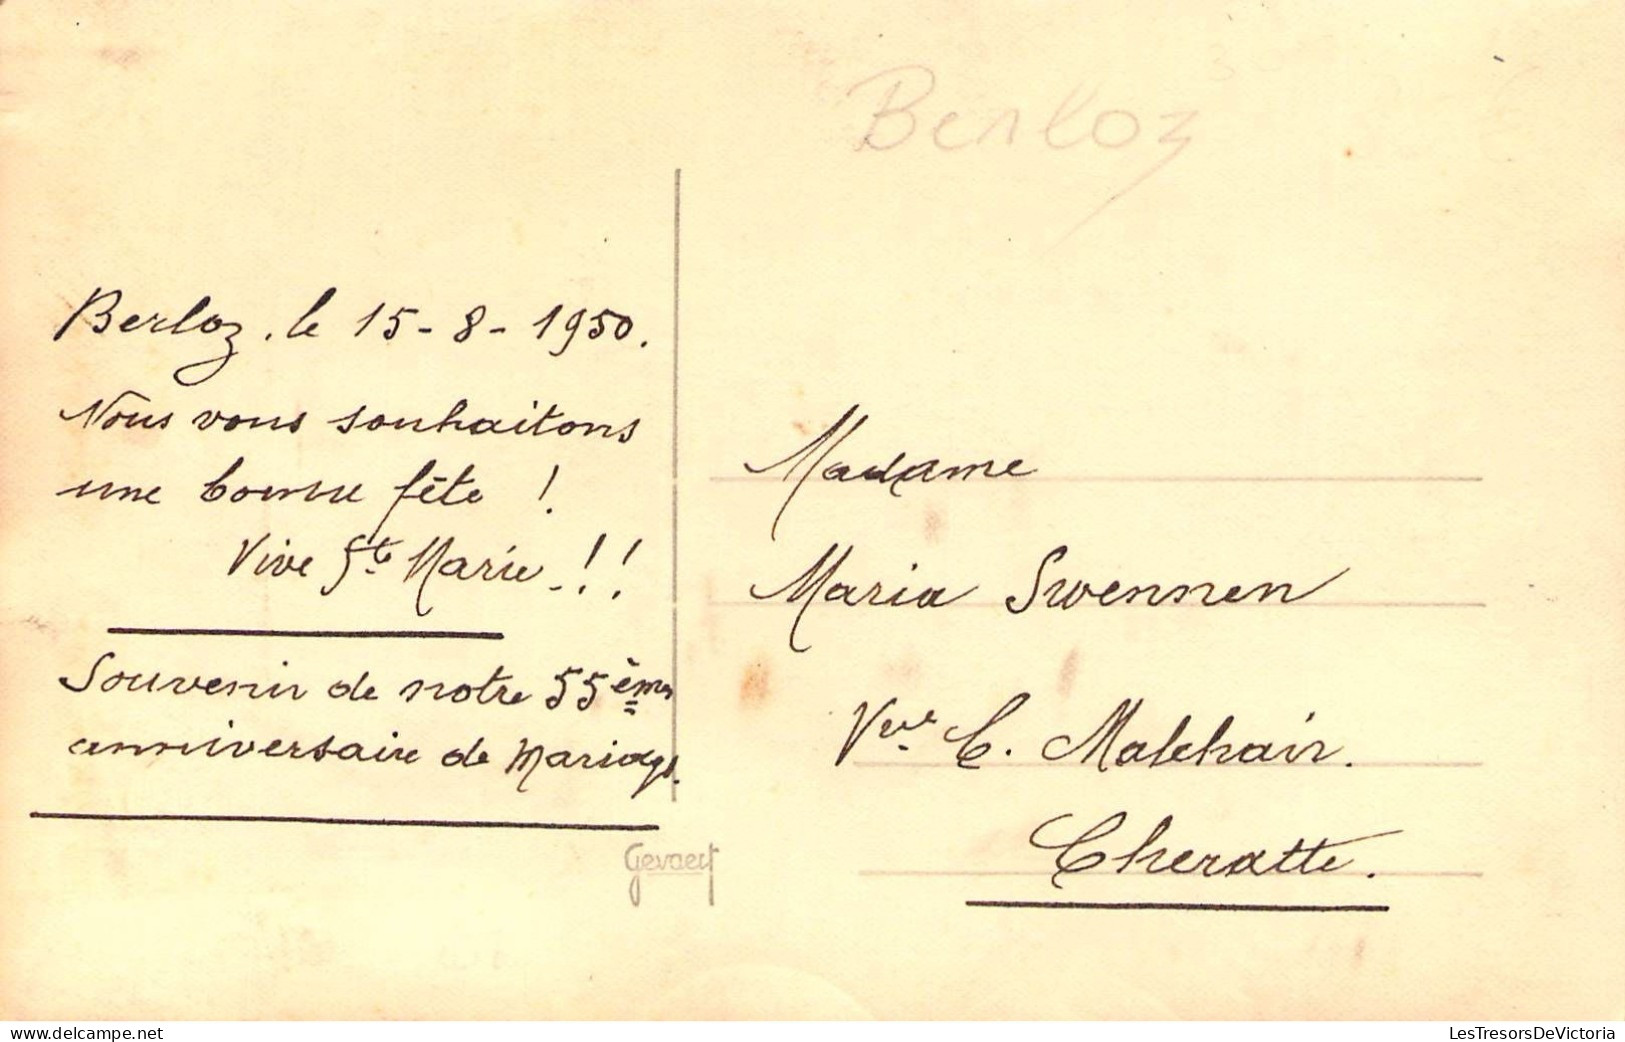 Berloz
Berloz, le 15-8-1950.
Nous vous souhaitons
une bonne fête !
Vive Ste Marie !!
Souvenir de notre 55ème
anniversaire de mariage.
Gevaert
Madame
Maria Swennen
Vve C. Malchair.
Cheratte.
delcampe.net
LesTresorsDeVictoria